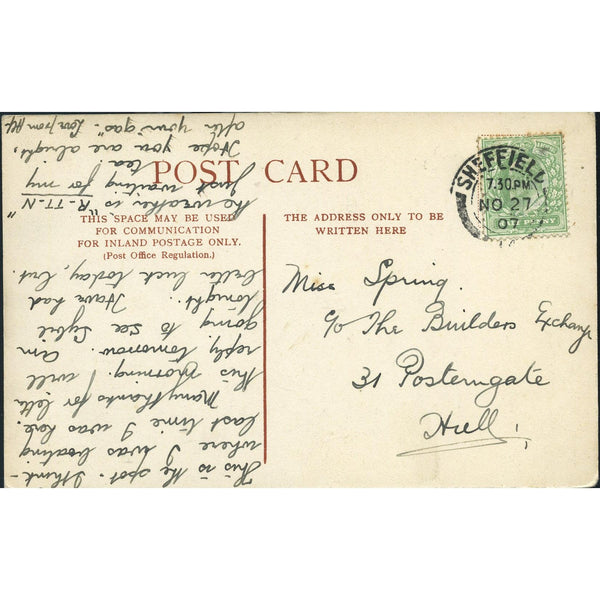 POST CARD
THIS SPACE MAY BE USED
FOR COMMUNICATION
FOR INLAND POSTAGE ONLY.
(Post Office Regulation.)
THE ADDRESS ONLY TO BE
WRITTEN HERE
SHEFFIELD
7.30PM
NO 27
07
Miss Spring.
c/o The Builders Exchange
31 Posterngate
Hull!
This is the spot. I think -
where I was boating
last time I was here.
Many thanks for letter
this morning, I will
reply tomorrow. Am
going to see Sybil
tonight. Have had
better luck today, but
the weather is "R-TT-N"
Just waiting for my
tea!
Hope you are alright,
after your "gas". Love from Alf.